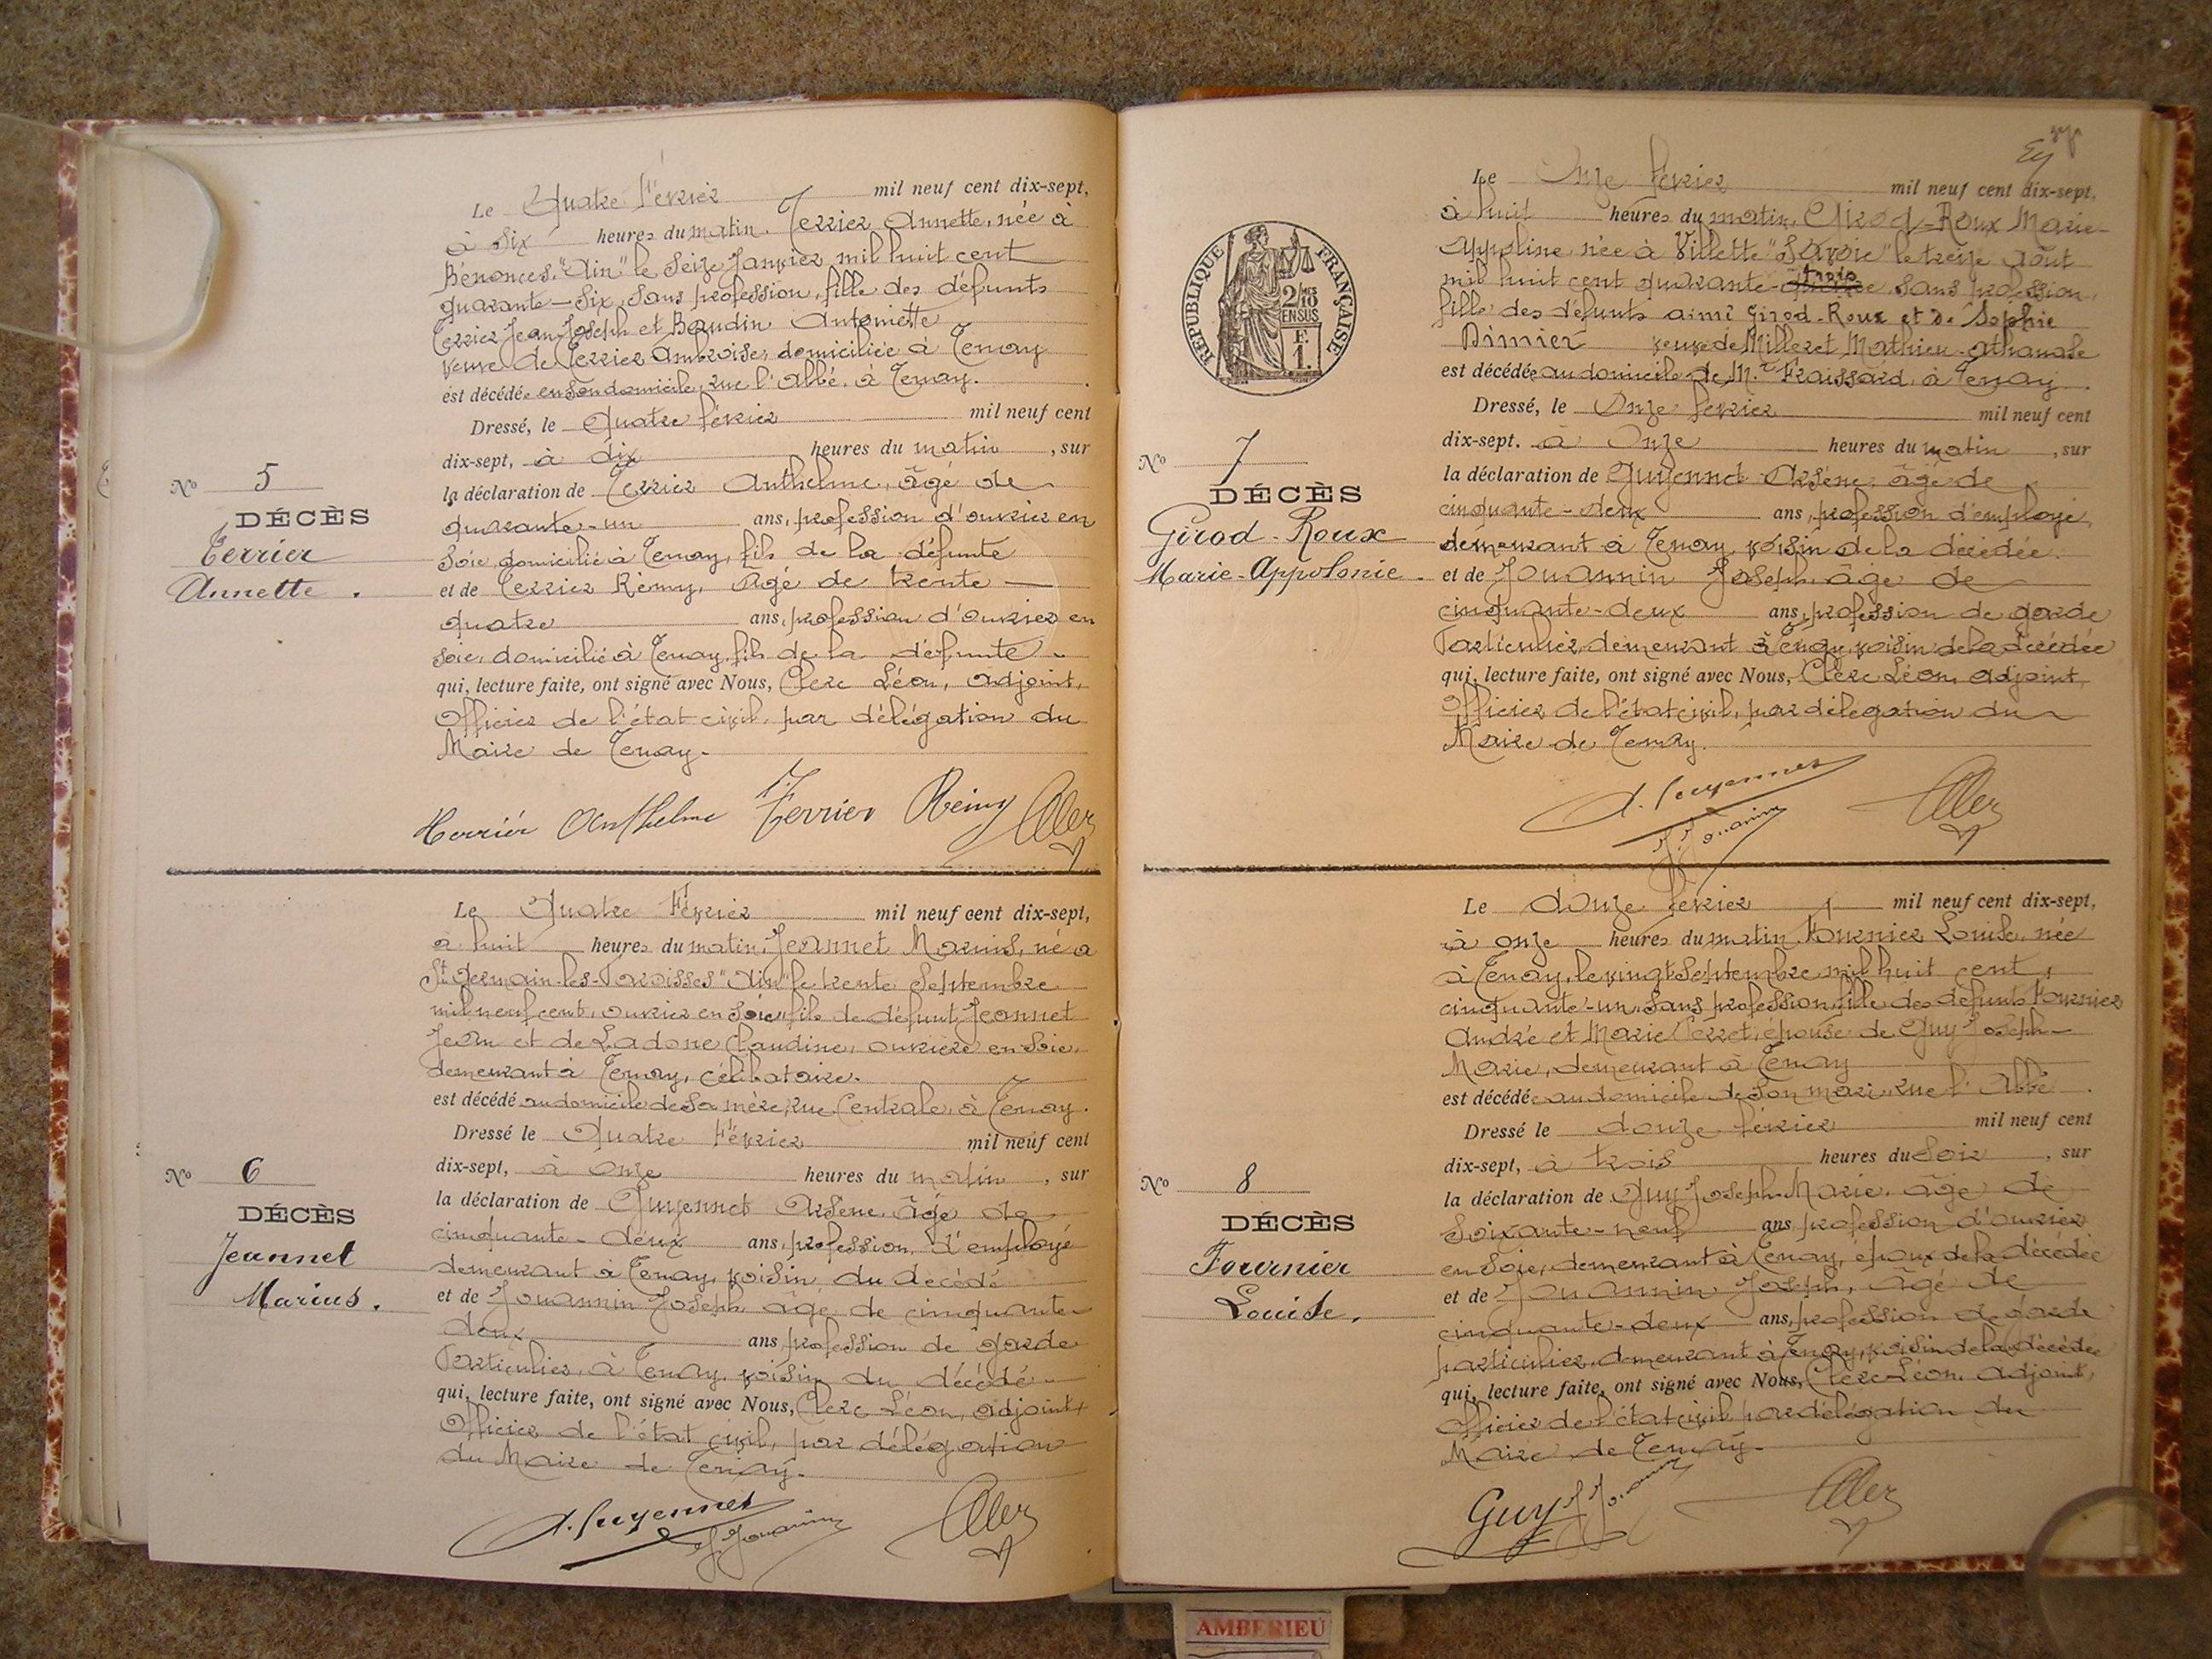 Le Quatre Février mil neuf cent dix-sept,
à Six heures du matin. Terrier Annette, née à
Bénonces "Ain" le Seize Janvier mil huit cent
quarante-Six, Sans profession, fille des défunts
Terrier Jean-Joseph et Baudin Antoinette
Veuve de Terrier Ambroise, domiciliée à Tenay
est décédée en Son domicile, rue l'Abbé, à Tenay.
Dressé, le Quatre février mil neuf cent
dix-sept, à dix heures du matin, sur
No 5
DÉCÈS
Terrier
Annette.
la déclaration de Terrier Anthelme, âgé de
quarante-un ans, profession d'ouvrier en
Soie, domicilié à Tenay, fils de la défunte
et de Terrier Rémy, âgé de trente-
quatre ans, profession d'ouvrier en
soie, domicilié à Tenay, fils de la défunte
qui, lecture faite, ont signé avec Nous, Clerc Léon, adjoint,
Officier de l'état civil, par délégation du
Maire de Tenay.
Terrier Anthelme Terrier Rémy Clerc
Le Quatre Février mil neuf cent dix-sept,
à huit heures du matin, Jeannet Marius, né à
St Germain-les-Paroisses "Ain" le trente Septembre
mil neuf cent, ouvrier en Soie, fils de défunt Jeannet
Jean et de Ladone Claudine, ouvrière en Soie,
demeurant à Tenay, célibataire.
est décédé au domicile de Sa mère, rue Centrale, à Tenay.
Dressé le Quatre Février mil neuf cent
dix-sept, à onze heures du matin, sur
No 6
DÉCÈS
Jeannet
Marius.
la déclaration de Guyennet Arsène, âgé de
cinquante-deux ans, profession, d'employé
demeurant à Tenay, voisin du décédé
et de Jouannin Joseph, âgé de cinquante-
deux ans, profession de garde
Particulier, à Tenay, voisin du décédé
qui, lecture faite, ont signé avec Nous, Clerc Léon, adjoint,
Officier de l'état civil, par délégation
du Maire de Tenay.
A. Guyennet J. Jouannin Clerc
Le Onze février mil neuf cent dix-sept,
à huit heures du matin, Girod-Roux Marie-
Appoline, née à Villette "Savoie" le treize Août
mil huit cent quarante-trois, Sans profession,
fille des défunts aimé Girod-Roux et de Sophie
Dimier veuve de Milleret Mathieu-Athanase
est décédée au domicile de Mr Fraissard, à Tenay.
Dressé, le Onze février mil neuf cent
dix-sept. à Onze heures du matin, sur
RÉPUBLIQUE FRANÇAISE
2/10 EN SUS
F.
1.
No 7
DÉCÈS
Girod-Roux
Marie-Appolonie.
la déclaration de Guyennet Arsène, âgé de
cinquante-deux ans, profession d'employé,
demeurant à Tenay, voisin de la décédée.
et de Jouannin Joseph, âgé de
cinquante-deux ans, profession de garde
Particulier, demeurant à Tenay, voisin de la décédée
qui, lecture faite, ont signé avec Nous, Clerc Léon, adjoint,
Officier de l'état civil, par délégation du
Maire de Tenay.
A. Guyennet J. Jouannin Clerc
Le douze février mil neuf cent dix-sept,
à onze heures du matin Fournier Louise, née
à Tenay, le vingt Septembre mil huit cent
cinquante-un, Sans profession, fille des défunts Fournier
André et Marie Perret, épouse de Guy Joseph-
Marie, demeurant à Tenay
est décédée au domicile de Son mari, rue l'Abbé.
Dressé le douze février mil neuf cent
dix-sept, à trois heures du Soir, sur
No 8
DÉCÈS
Fournier
Louise.
la déclaration de Guy Joseph-Marie, âgé de
Soixante-neuf ans, profession d'ouvrier
en Soie, demeurant à Tenay, époux de la décédée
et de Jouannin Joseph, âgé de
cinquante-deux ans, profession de garde
particulier, demeurant à Tenay, voisin de la décédée
qui, lecture faite, ont signé avec Nous, Clerc Léon, adjoint,
Officier de l'état civil, par délégation du
Maire de Tenay.
Guy J. Jouannin Clerc
AMBERIEU